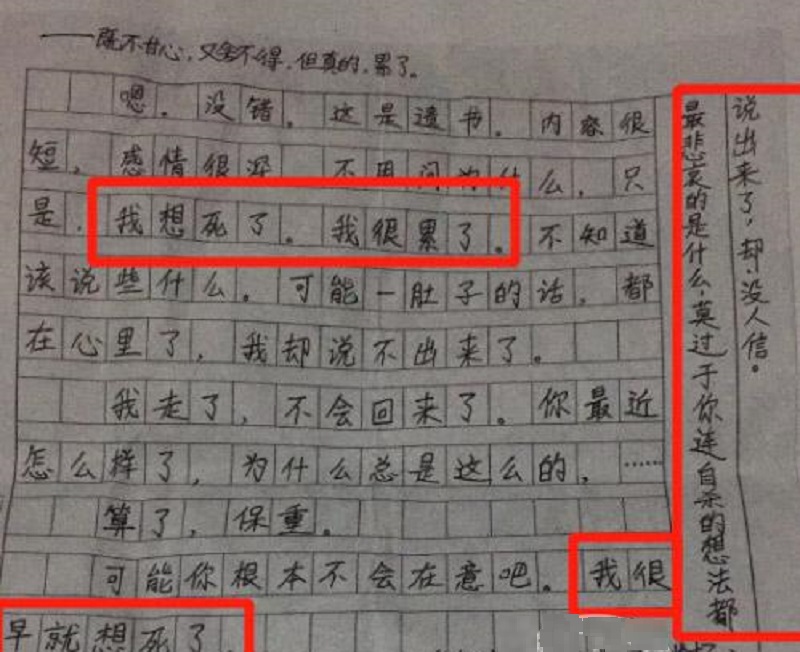 ——既不甘心，又舍不得，但真的，累了。
嗯。没错。这是遗书。内容很
短，感情很深 不用问为什么，只
是，我想死了。我很累了。不知道
该说些什么。可能一肚子的话，都
在心里了，我却说不出来了。
我走了，不会回来了。你最近
怎么样了，为什么总是这么的，……
算了，保重。
可能你根本不会在意吧。我很
早就想死了
最悲哀的是什么，莫过于你连自杀的想法都
说出来了，却没人信。